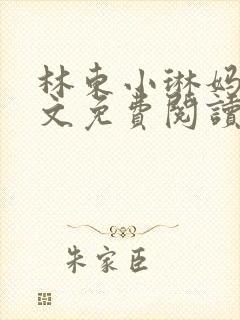 林東小琳妈
文免費閱讀
朱家臣